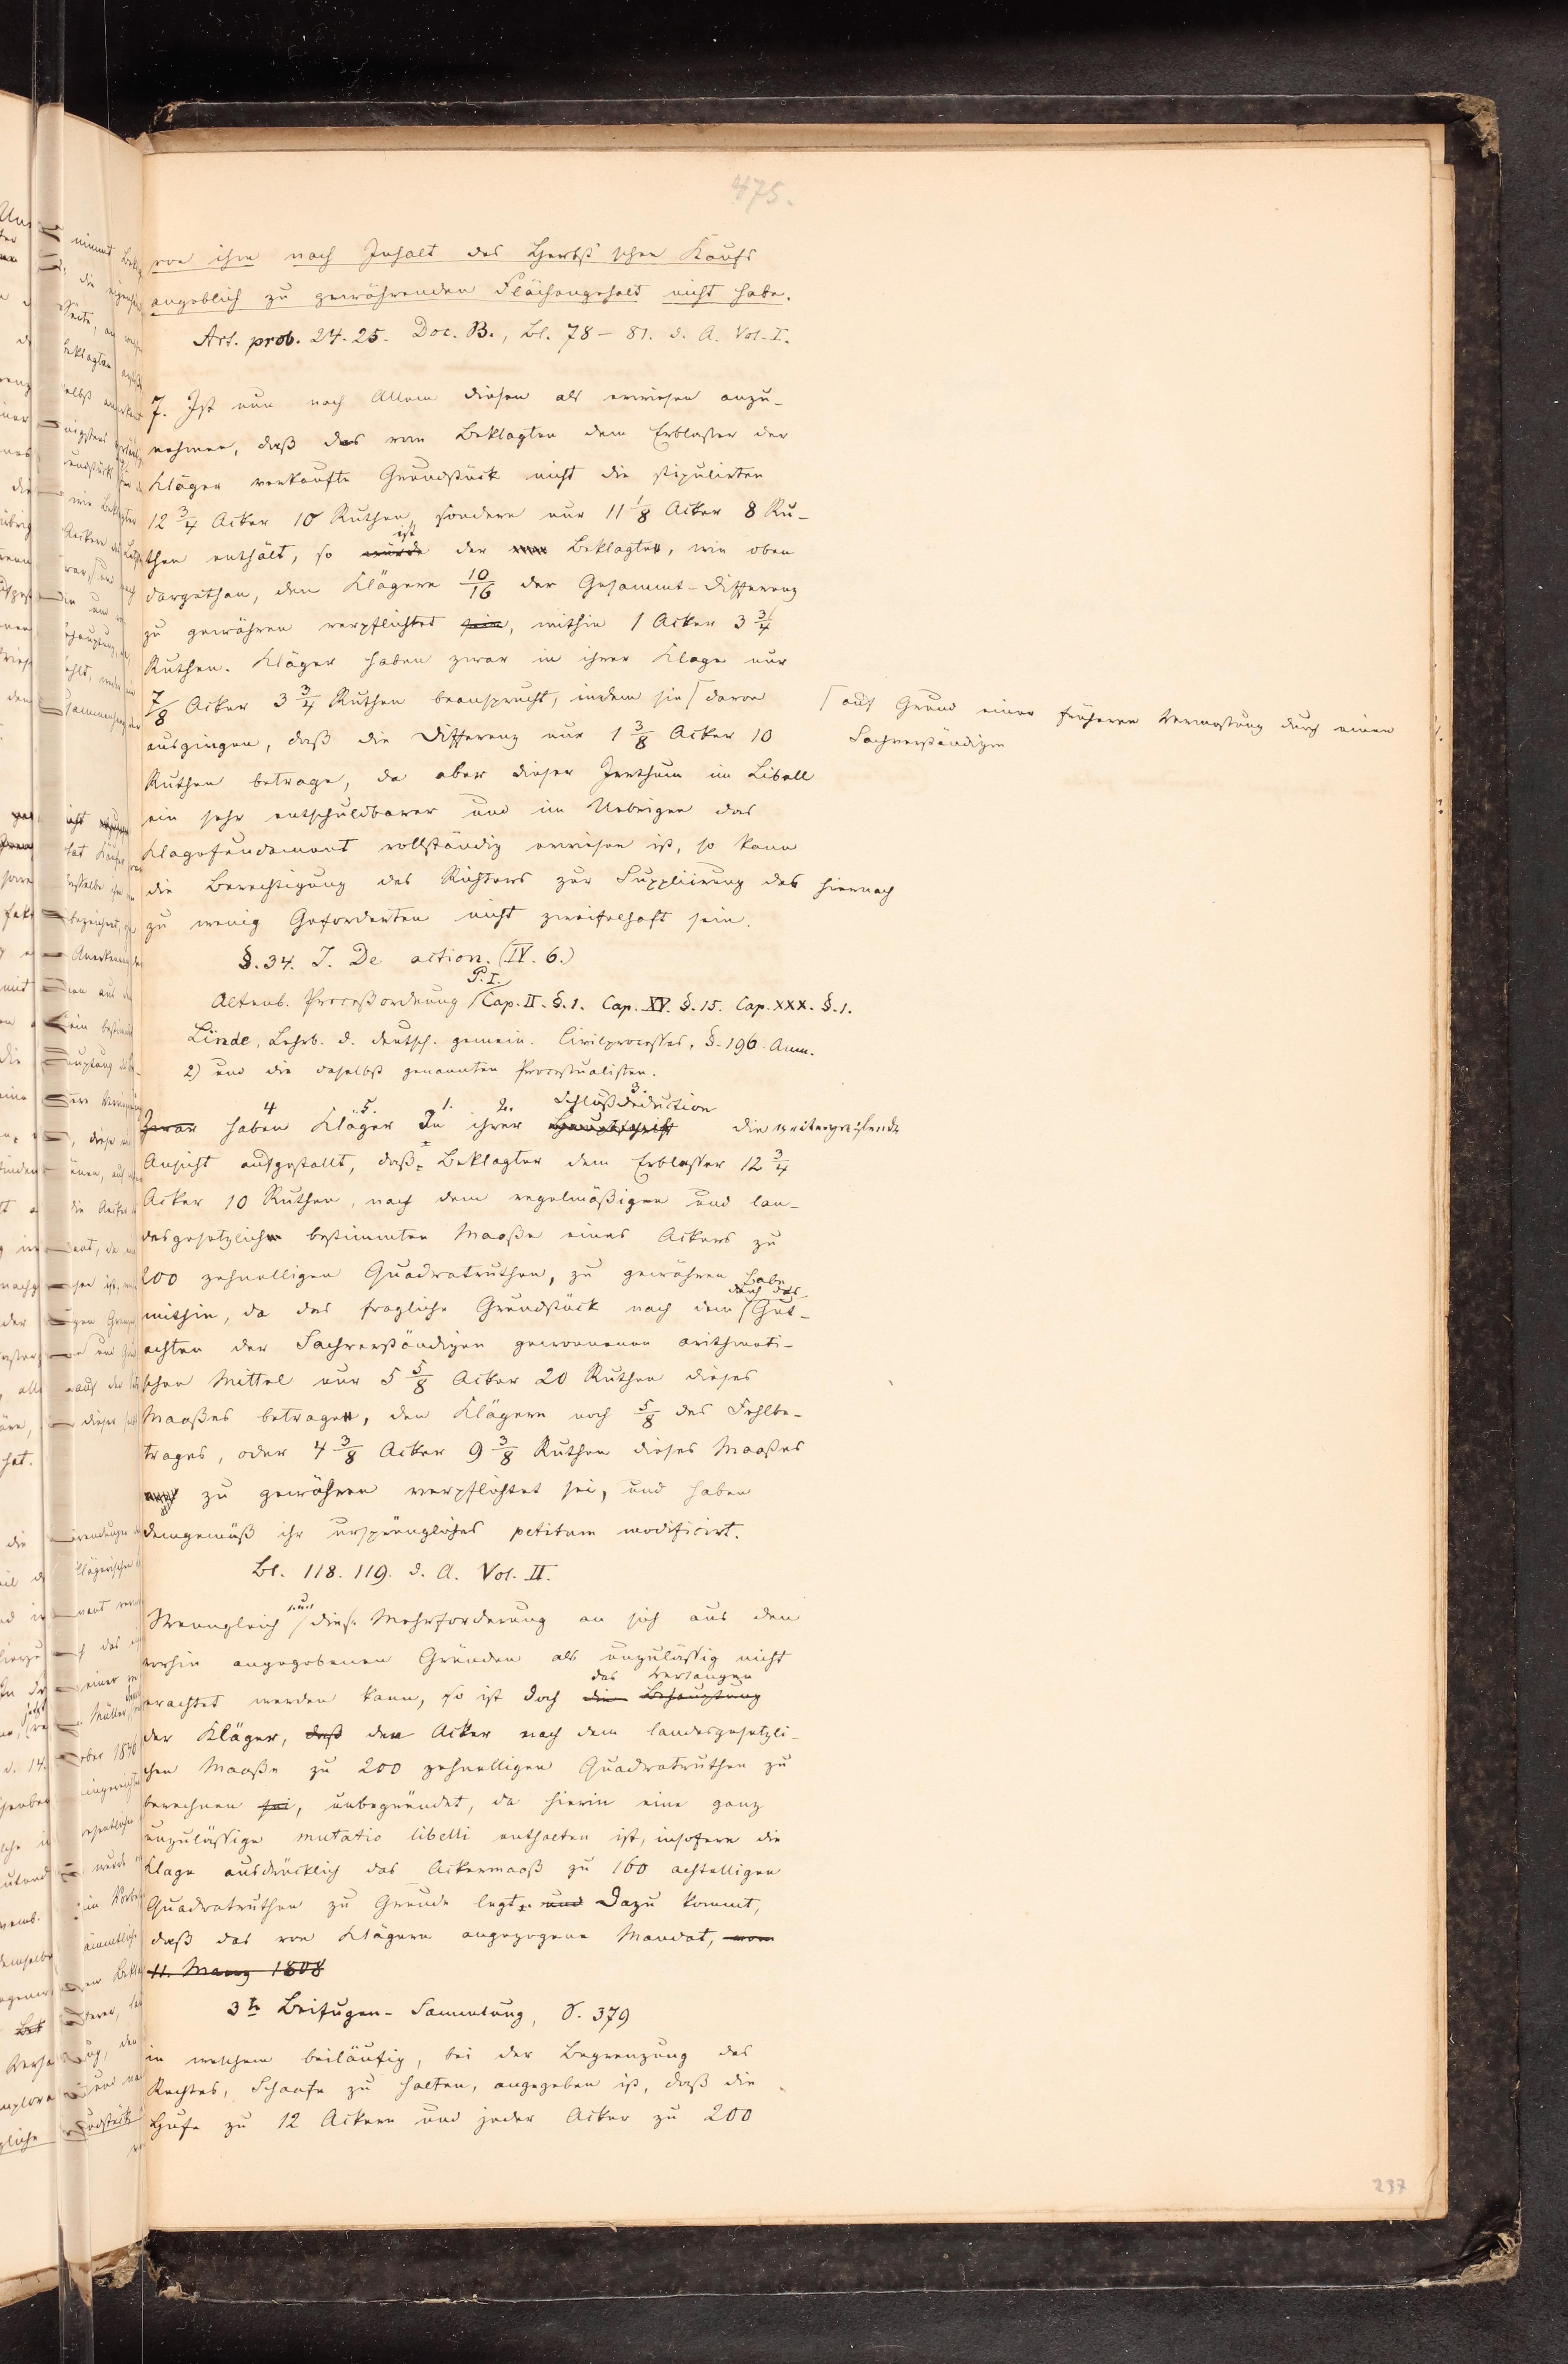 475.
von ihm nach Inhalt des Herbst'schen Kaufs
angeblich zu gewährenden Flächengehalt nicht habe.
Art. prob. 24. 25. Doc. B., Bl. 78 – 81. d. A. Vol. I.
7. Ist nun nach Allem diesen als erwiesen anzu-
nehmen, daß das vom Beklagten dem Erblasser der
Kläger verkaufte Grundstück nicht die stipulirten
12 3/4 Acker 10 Ruthen, sondern nur 11 1/8 Acker 8 Ru-
ist
then enthält, so würde der Beklagte, wie oben
dargethan, den Klägern 10/16 der Gesammt-Differenz
zu gewähren verpflichtet sein, mithin 1 Acker 3 3/4
Ruthen. Kläger haben zwar in ihrer Klage nur
7/8 Acker 3 3/4 Ruthen beansprucht, indem sie ⌈ davon
⌈ auf Grund einer früheren Vermessung durch einen
Sachverständigen
ausgingen, daß die Differenz nur 1 3/8 Acker 10
Ruthen betrage, da aber dieser Irrthum im Libell
ein sehr entschuldbarer und im Uebrigen das
Klagefundament vollständig erwiesen ist, so kann
die Berechtigung des Richters zur Supplirung des hiernach
zu wenig Geforderten nicht zweifelhaft sein.
§. 34. J. De action. (IV. 6.)
P. I.
Altenb. Proceßordnung ⌈ Cap. II. §. 1. Cap. XV. §. 15. Cap. XXX. §. 1.
Linde, Lehrb. d. deutsch. gemein. Civilprocesses, §. 196. Anm.
2) und die daselbst genannten Processualisten.
4 5. 1. 2. 3. Schlußdeduction
Zwar haben Kläger In ihrer Hauptschrift die weitergreifende
Ansicht aufgestellt, daß Beklagter dem Erblasser 12 3/4
Acker 10 Ruthen, nach dem regelmäßigen und lan-
desgesetzlich bestimmten Maaße eines Ackers zu
200 zehnelligen Quadratruthen, zu gewähren habe
durch das
mithin, da das fragliche Grundstück nach dem ⌈ Gut-
achten der Sachverständigen gewonnenen arithmeti-
schen Mittel nur 5 5/8 Acker 20 Ruthen dieses
Maaßes betrage, den Klägern noch 5/8 des Fehlbe-
trages, oder 4 3/8 Acker 9 3/8 Ruthen dieses Maaßes
zu gewähren verpflichtet sei, und haben
demgemäß ihr ursprüngliches petitum modificirt.
Bl. 118. 119. d. A. Vol. II.
nun
Wenngleich ⌈ diese Mehrforderung an sich aus den
vorhin angegebenen Gründen als unzulässig nicht
das Verlangen
erachtet werden kann, so ist doch die Behauptung
der Kläger, daß den Acker nach dem landesgesetzli-
chen Maaße zu 200 zehnelligen Quadratruthen zu
berechnen sei, unbegründet, da hierin eine ganz
unzulässige mutatio libelli enthalten ist, insofern die
Klage ausdrücklich das Ackermaaß zu 160 achtelligen
Quadratruthen zu Grunde legt. und Dazu kommt,
daß das von Klägern angezogene Mandat, vom
11. März 1808
3te Beifugen-Sammlung, S. 379
in welchem beiläufig, bei der Begrenzung des
Rechtes, Schaafe zu halten, angegeben ist, daß die
Hufe zu 12 Ackern und jeder Acker zu 200
237